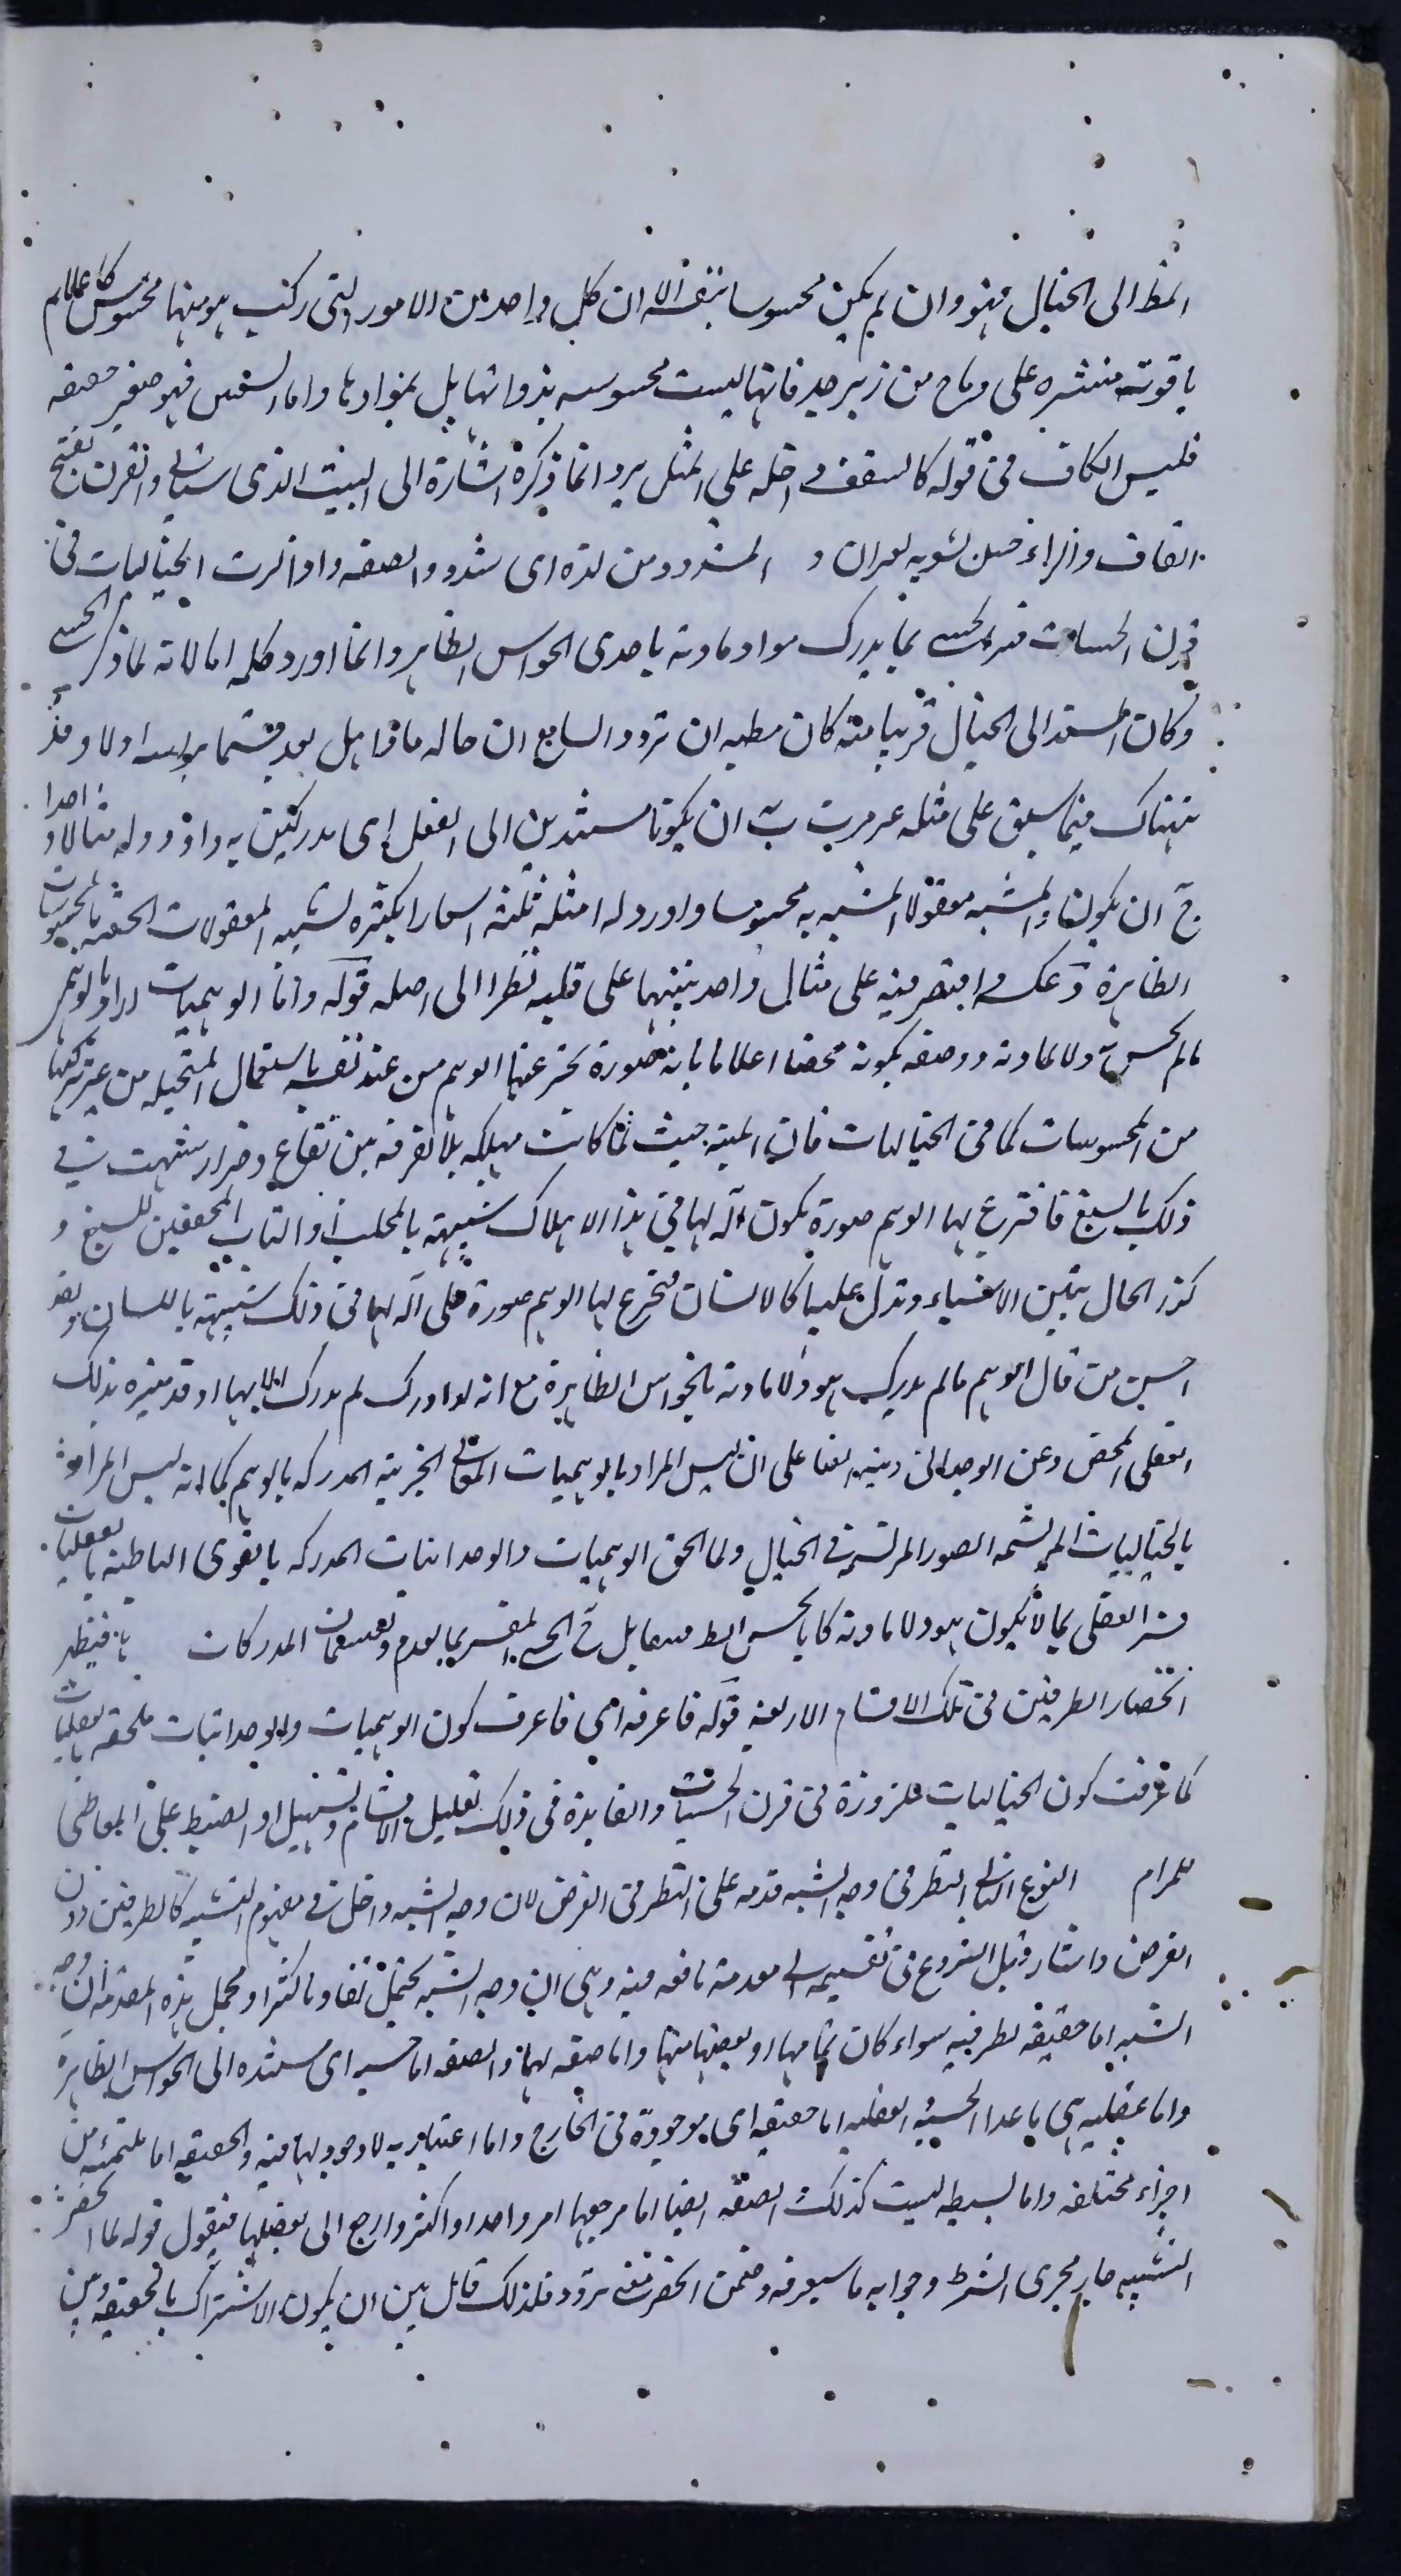 الى الخيال فهو وان لم يكن محسوسا بنفسه الا ان كل واحد من الامور التى ركب هو منها محسوس كاعلام
ياقوتة منتشره على رماح من زبرجد فانها ليست محسوسه بذواتها بل بموادها واما السقف فهو صغير
فليس الكاف فى قوله كالسقف داخله على المثل به وانما ذكره اشارة الى البيت الذى سياتى والقرن بفتح
القاف والراء حبل المشدود من لزه اى شده والصقه واذا لزت الخياليات فى
قرن الحسيات فسر الحسى بما يدرك هو او مادته باحدى الحواس الظاهره وانما اورد كلمه اما لانه لما ذكر الحسى
وكان المستند الى الخيال قريبا منه كان مظنه ان تردد السامع ان حاله ماذا هل يعد قسما اولا وقد
نبهناك فيما سبق على مثله غير مرت ب ان يكونا مستندين الى العقل اى مدركين به واورد له مثالا واحدا
ج ان يكون المشبه معقولا المشبه به محسوسا واورد له امثله ثلثه اشعارا بكثره تشبيه المعقولات بالمحسوسات
الظاهرة د عكسه اقتصر فيه على مثال واحد تنبيها على قلته نظرا الى اصله قوله واما الوهميات اراد بالوهمى
مالم يحس به ولا لمادته ووصفه بكونه محضا اعلاما بانه صورة يخترعها الوهم من عند نفسه باستعمال المتخيله من غير تركيبها
من المحسوسات كما فى الخياليات فان المنيه حيث كانت مهلكه بلا تفرقه بين نفاع وضرار شبهت فى
ذلك بالسبع فاخترع لها الوهم صورة يكون آله لها فى هذا الاهلاك شبيهة بالمخلب او الناب المحققين للسبع و
كذا الحال تبين الاشياء وتدل عليها كالانسان فيخترع لها الوهم صورة هى آله لها فى ذلك شبيهة باللسان
احسن من قال الوهم مالم يدرك هو ولا مادته بالحواس الظاهرة مع انه لو ادرك لم يدرك الا بها اذ قد ميزه بذلك
العقلى المحض وعن الوجدانى ونبه ايضا على ان ليس المراد بالوهميات المعانى الجزئيه المدركه بالوهم كما انه ليس المراد
بالخياليات المرتسمه الصور المرتسمه فى الخيال ولما الحق الوهميات والوجدانيات المدركه بالقوى الباطنه بالعقليات
فسر العقلى بما لا يكون هو ولا مادته بالحس الحسى المفسر المدركات فيظهر
انحصار الطرفين فى تلك الاقسام الاربعه قوله فاعرفه اى فاعرف كون الوهميات والوجدانيات ملحقه بالعقليات
كما عرفت كون الخياليات ملزوزة فى قرن الحسيات والفايدة فى ذلك تقليل الاقسام وتسهيل الضبط على
للمرام النوع الثانى النظر فى وجه الشبه قدمه على النظر فى الغرض لان وجه الشبه داخل فى مفهوم التشبيه كالطرفين دون
الغرض واشار قبل الشروع فى تقسيمه الى مقدمة نافعه فيه وهى ان وجه الشبه يحتمل تفاوتا كثيرا ومجمل هذه المقدمه ان وجه
الشبه اما حقيقه لطرفيه سواء كان تمامها او بعضها منها واما صفه لهما والصفه اما حسيه اى مستنده الى الحواس الظاهره
واما عقليه هى ما عدا الحسيه والعقليه اما حقيقيه اى موجودة فى الخارج واما اعتباريه لا وجود لها فيه والحقيقيه اما ملتئمه من
اجزاء مختلفه واما بسيطه ليست كذلك الصفه ايضا اما مرجعها امر واحد او اكثر وارجع الى بعضها فيقول قوله لما انحصر
التشبيه جار مجرى الشرط وجوابه ما سيعرفه وضمن انحصر معنى تردد فلذلك قال بين ان يكون الاشتراك بالحقيقه وبين